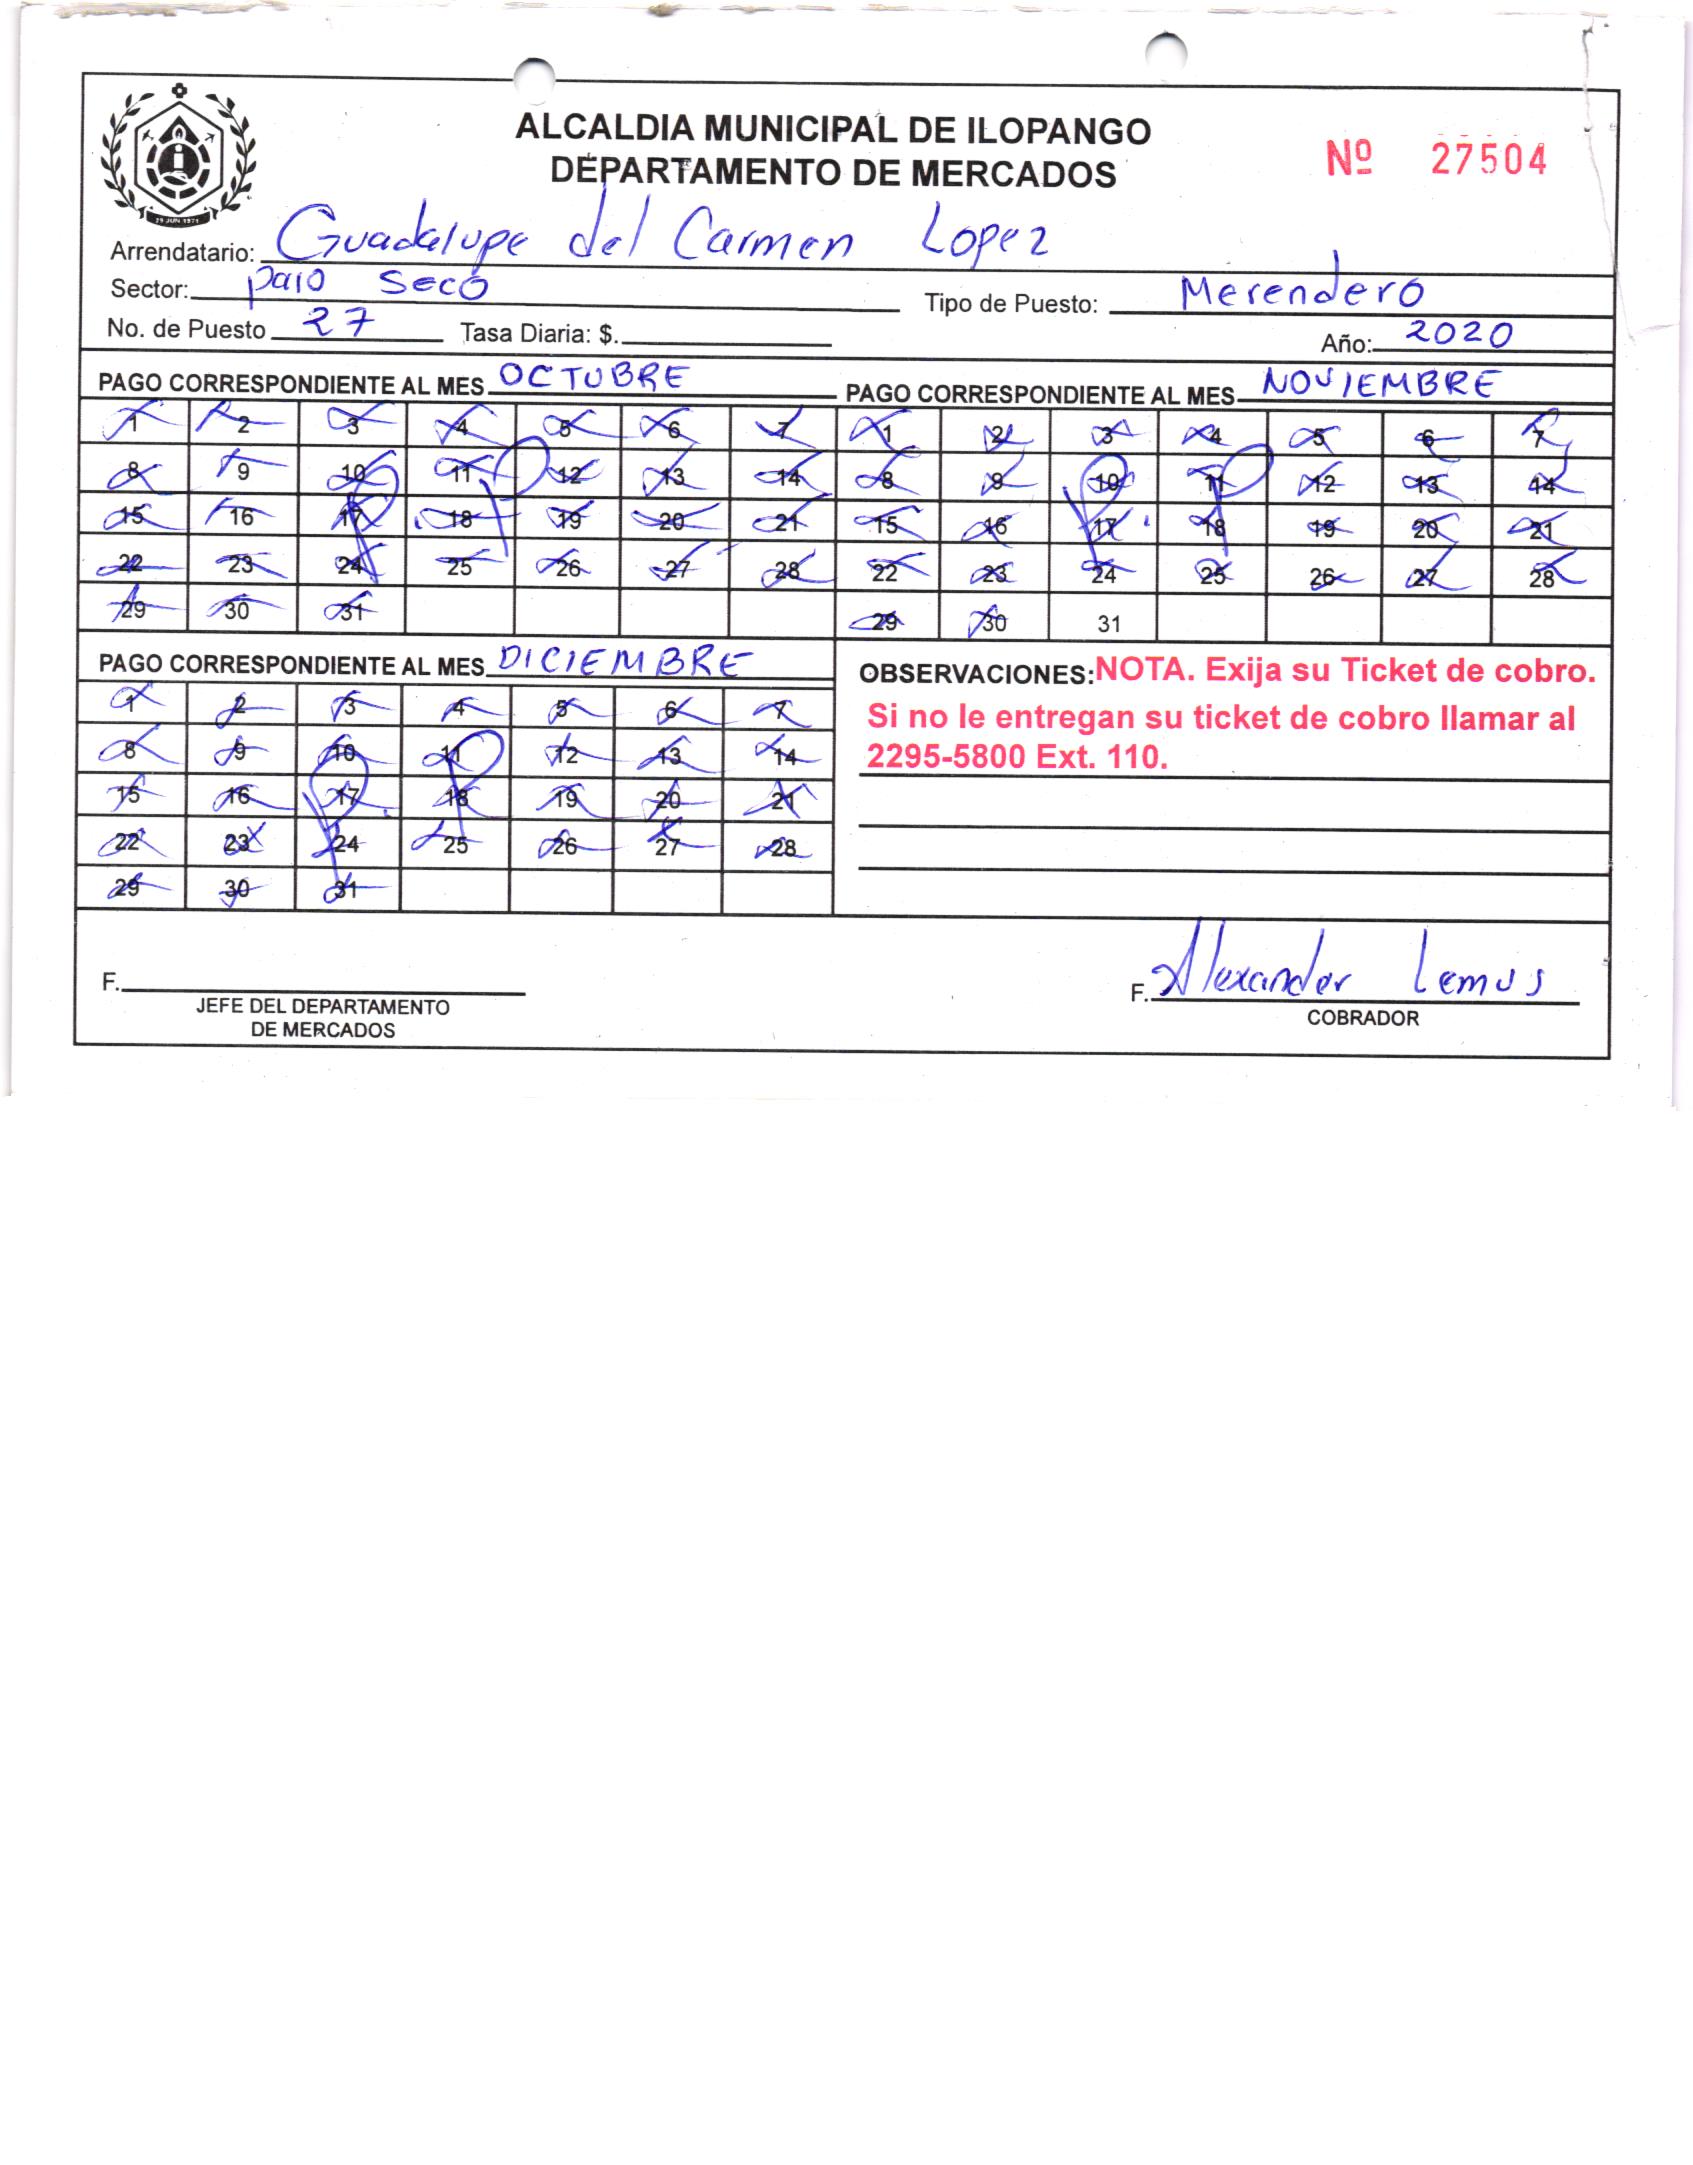 ALCALDIA MUNICIPAL DE ILOPANGO
DEPARTAMENTO DE MERCADOS
Nº 27504
29 JUN 1971
Arrendatario: Guadalupe del Carmen Lopez
Sector: palo seco Tipo de Puesto: Merendero
No. de Puesto 27 Tasa Diaria: $. Año: 2020
PAGO CORRESPONDIENTE AL MES OCTUBRE
1 2 3 4 5 6 7
8 9 10 11 12 13 14
15 16 17 18 19 20 21
22 23 24 25 26 27 28
29 30 31
P.P
PAGO CORRESPONDIENTE AL MES NOVIEMBRE
1 2 3 4 5 6 7
8 9 10 11 12 13 14
15 16 17 18 19 20 21
22 23 24 25 26 27 28
29 30 31
P.P
PAGO CORRESPONDIENTE AL MES DICIEMBRE
1 2 3 4 5 6 7
8 9 10 11 12 13 14
15 16 17 18 19 20 21
22 23 24 25 26 27 28
29 30 31
P.P
OBSERVACIONES: NOTA. Exija su Ticket de cobro.
Si no le entregan su ticket de cobro llamar al
2295-5800 Ext. 110.
F.
JEFE DEL DEPARTAMENTO
DE MERCADOS
F. Alexander Lemus
COBRADOR